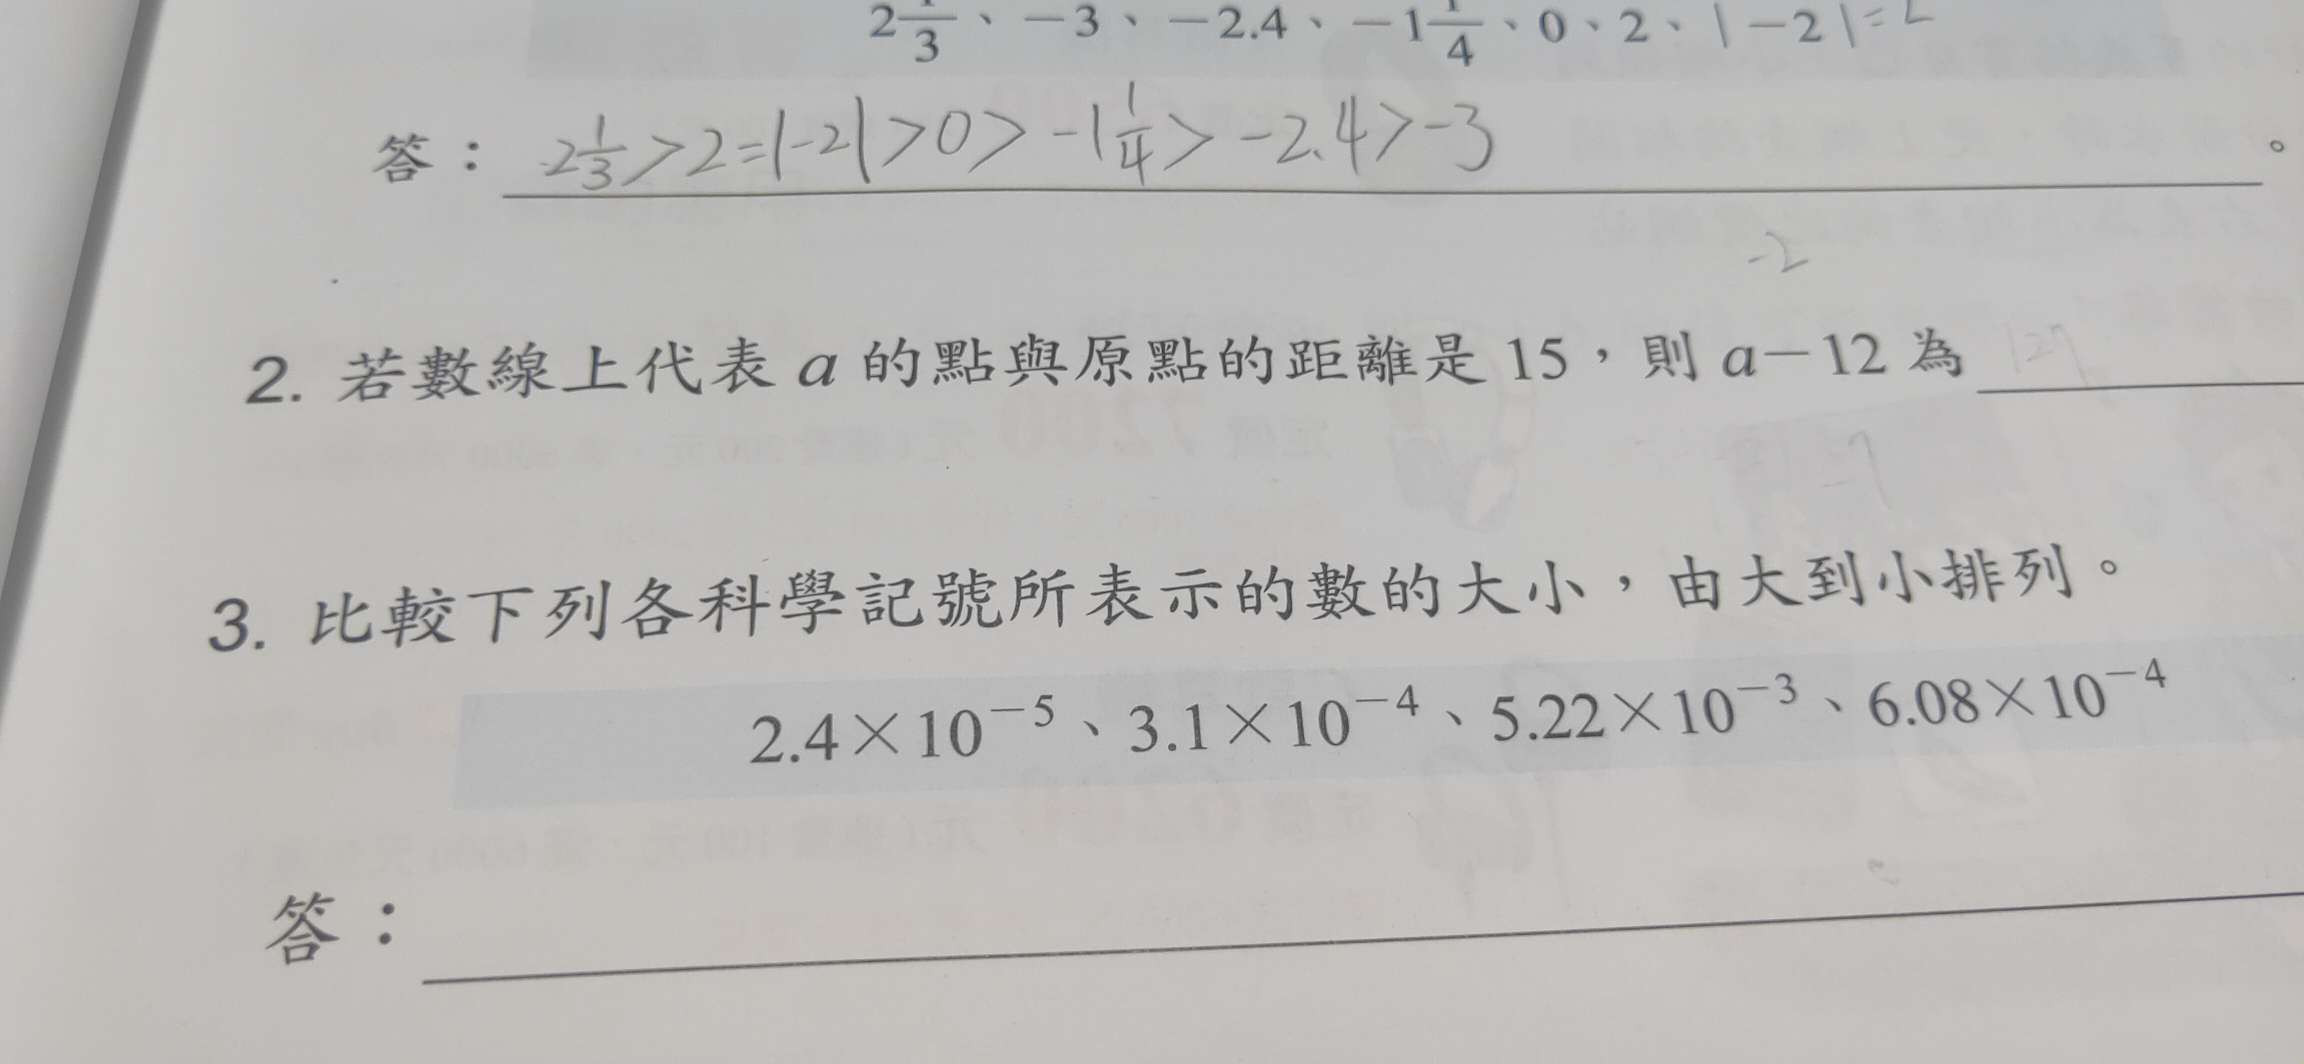 2 1/3、－3、－2.4、－1 1/4、0、2、|－2|=2
答：2 1/3>2=|-2|>0>-1 1/4>-2.4>-3。
-2
2. 若數線上代表 a 的點與原點的距離是 15，則 a－12 為
3. 比較下列各科學記號所表示的數的大小，由大到小排列。
2.4×10⁻⁵、3.1×10⁻⁴、5.22×10⁻³、6.08×10⁻⁴
答：